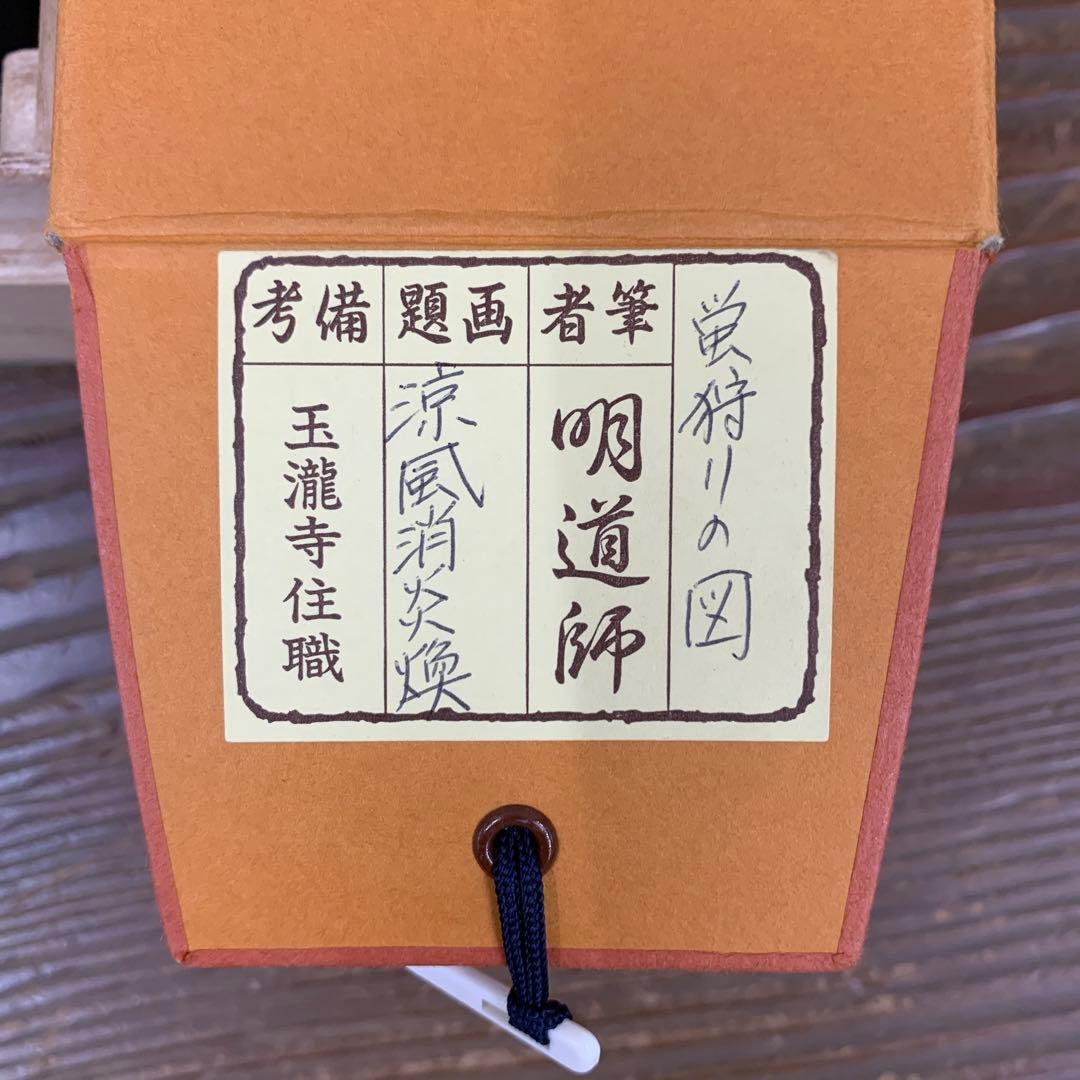 蛍狩りの図
筆者
明道師
画題
涼風消炎煥
備考
玉瀧寺住職